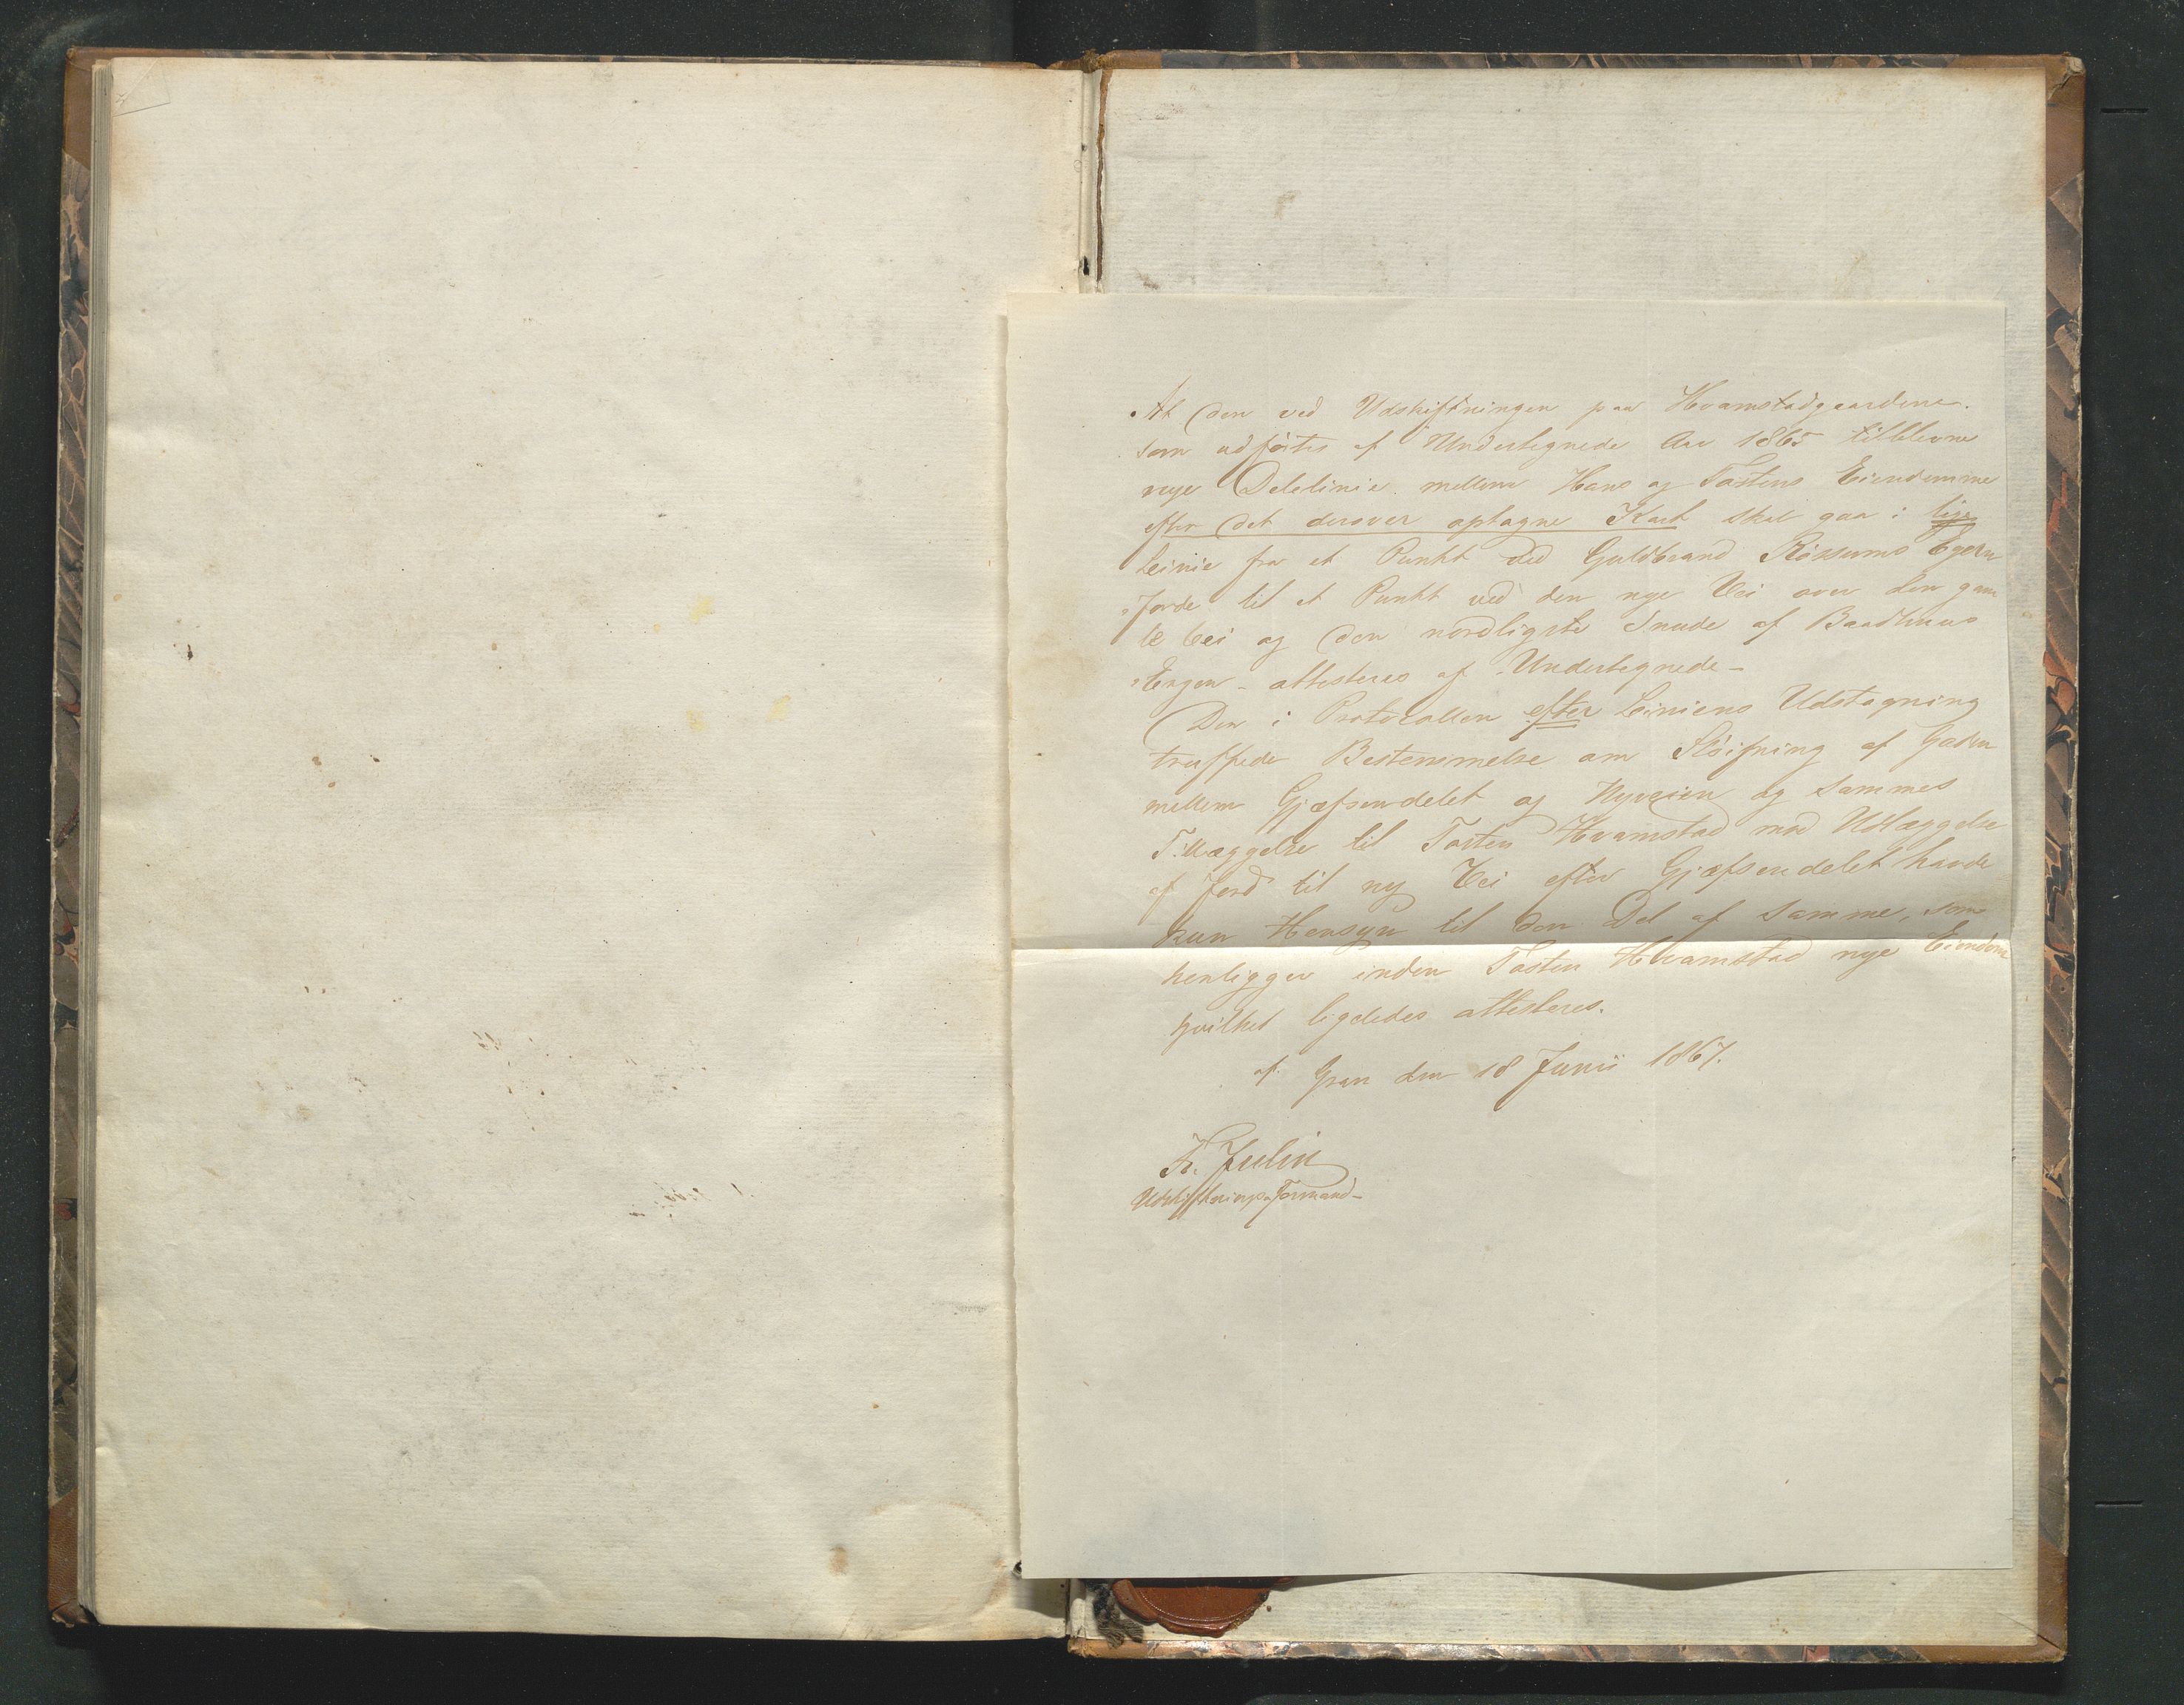 At den ved Udskiftningen paa Hvamstadgaardene
som udførtes af Undertegnede Aar 1865 tilblevne
nye Delelinie mellem Hans og Tostens Eiendomme
efter det derover optagne Kart skal gaa i lige
Linie fra et Punkt ved Guldbrand Røssums Ager
Jorde til et Punkt ved den nye Vei over den gam
le Vei og den nordligste Snude af Baadhuus
Engen – attesteres af Undertegnede –
Den i Protocollen efter Liniens Udstagning
truffede Bestemmelse om Sløifning af Gaden
mellem Gjæfsendelet og Nyveien og sammes
Tillæggelse til Tosten Hvamstad mod Udlæggelse
af Jord til ny Vei efter Gjæfsendelet havde
kun Hensyn til den Del af samme, som
henligger inden Tosten Hvamstad nye Eiendom
hvilket ligeledes attesteres.
Gran den 18 Junii 1867.
Fr. Julin
Udskiftnings-Formand –